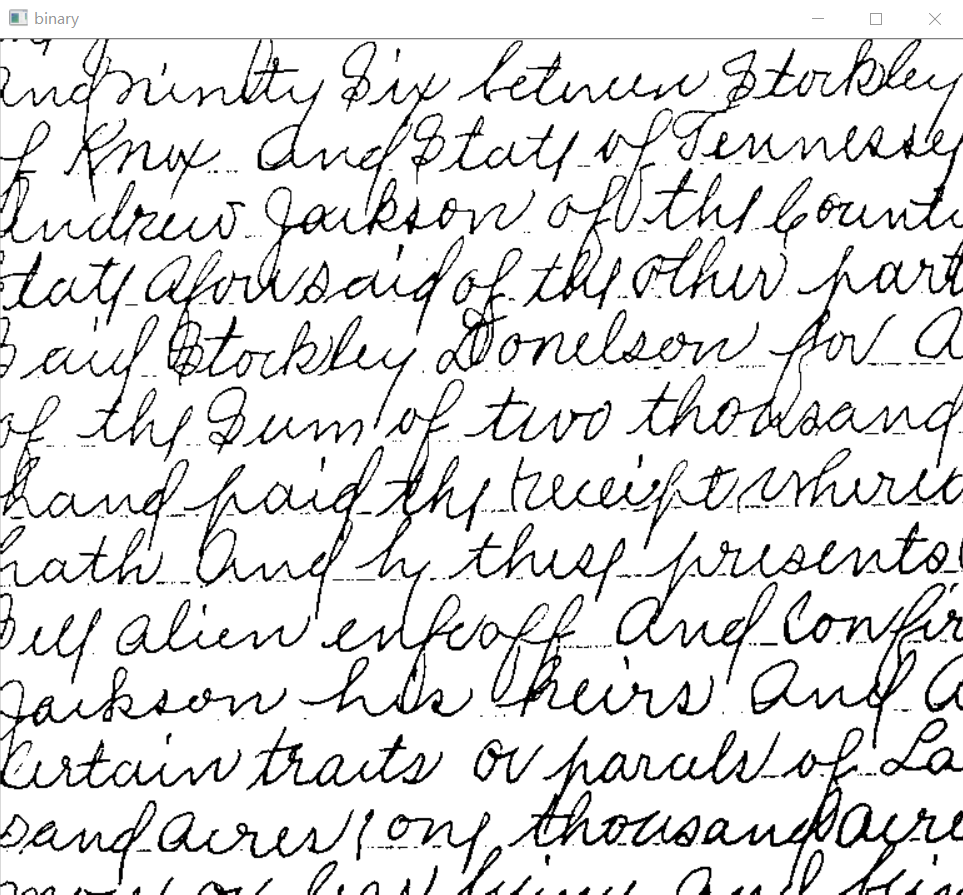 binary
and ninety Six between Stockley
of Knox and State of Tennessee
Andrew Jackson of the County
State aforesaid of the other part
Said Stockley Donelson for a
of the Sum of two thousand
hand paid the receipt where
hath and by these presents
Sell alien enfeoff and confir
Jackson his heirs and a
Certain tracts or parcels of La
sand acres, one thousand acre